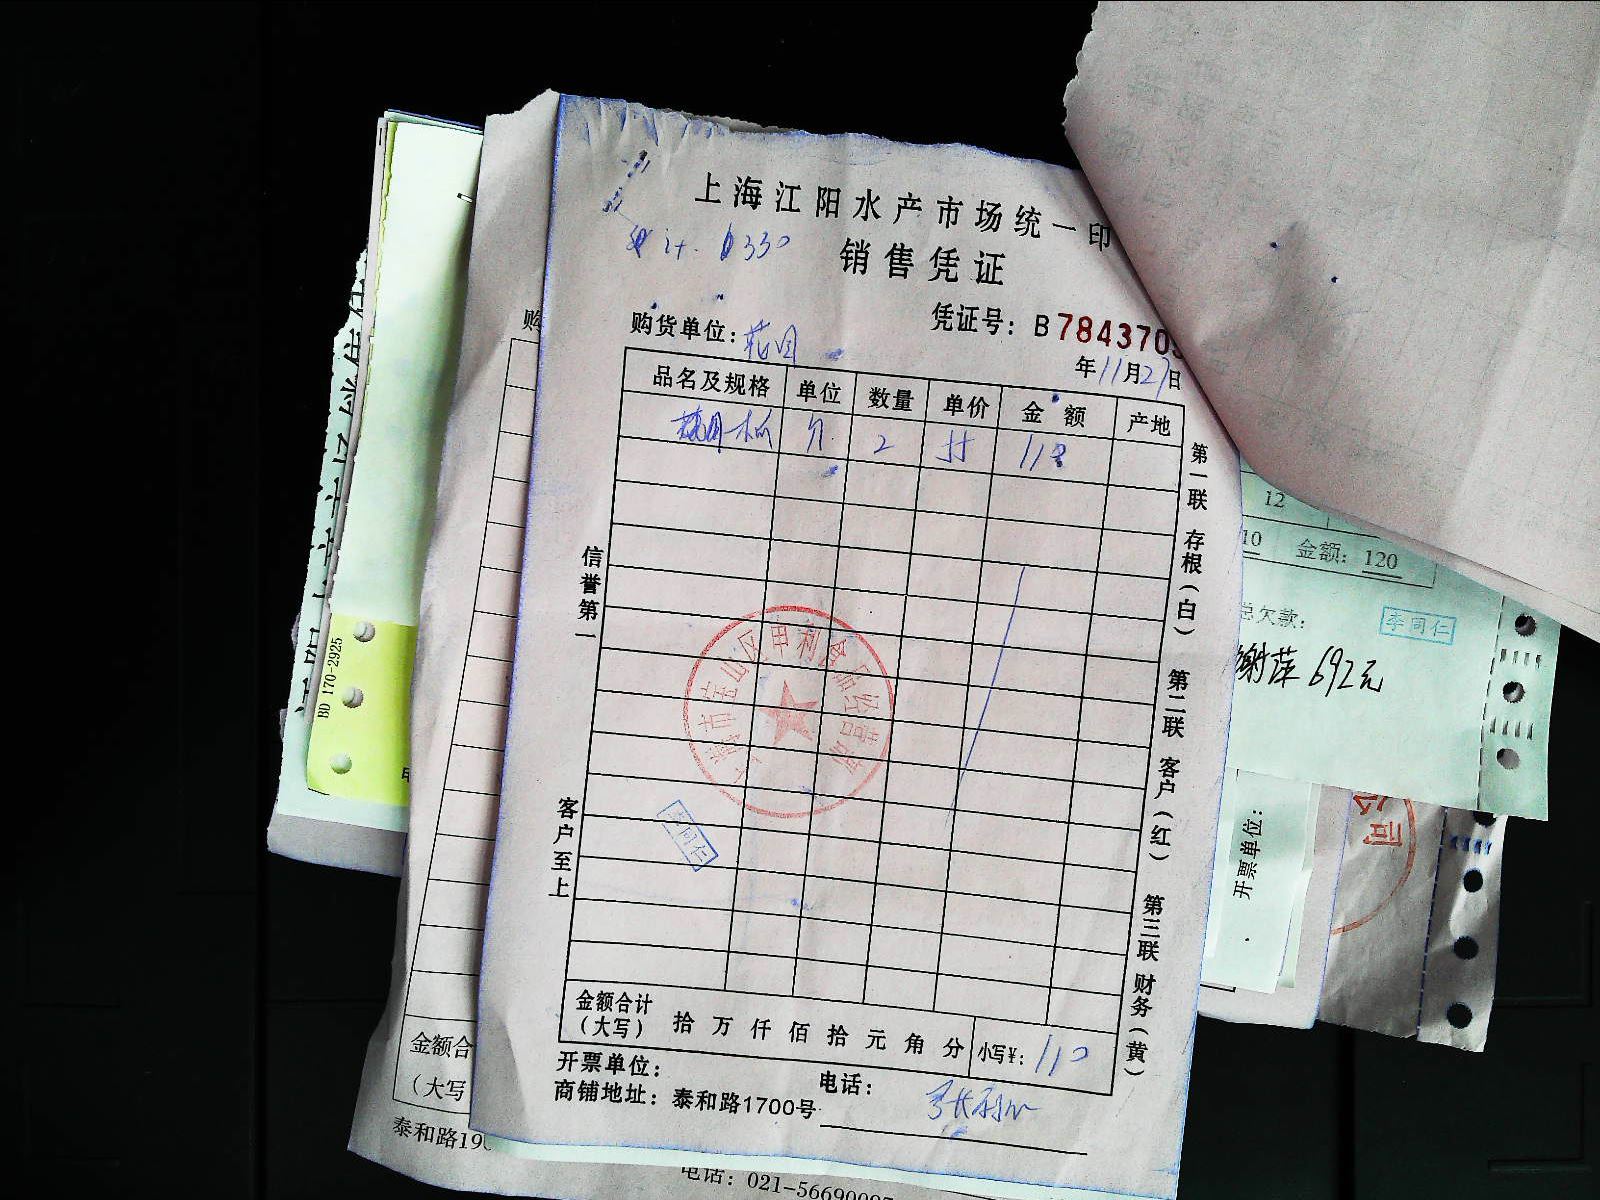 上海江阳水产市场统一印
销售凭证
330
购货单位：
凭证号：B784370
年11月27日
品名及规格 单位 数量 单价 金额 产地
2 55 110
信誉第一
客户至上
第一联 存根（白） 第二联 客户（红） 第三联 财务（黄）
上海市宝山区申利食品经营部
李同仁
金额合计
（大写） 拾 万 仟 佰 拾 元 角 分 小写¥：110
开票单位：
电话：
商铺地址：泰和路1700号
购
金额合
（大写
泰和路19
电话：021-56690
BD 170-2925
12
10 金额：120
总欠款：
李同仁
谢萍 692元
开票单位：
公司